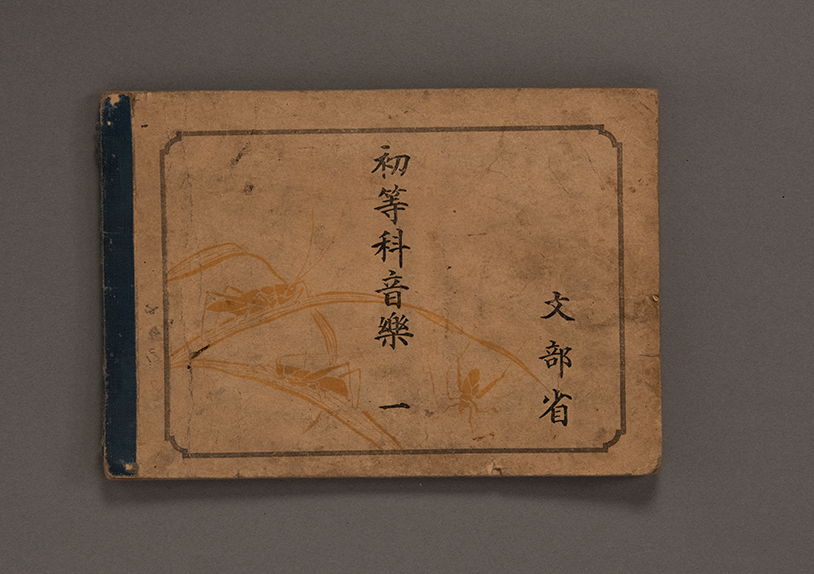 文部省
初等科音樂 一